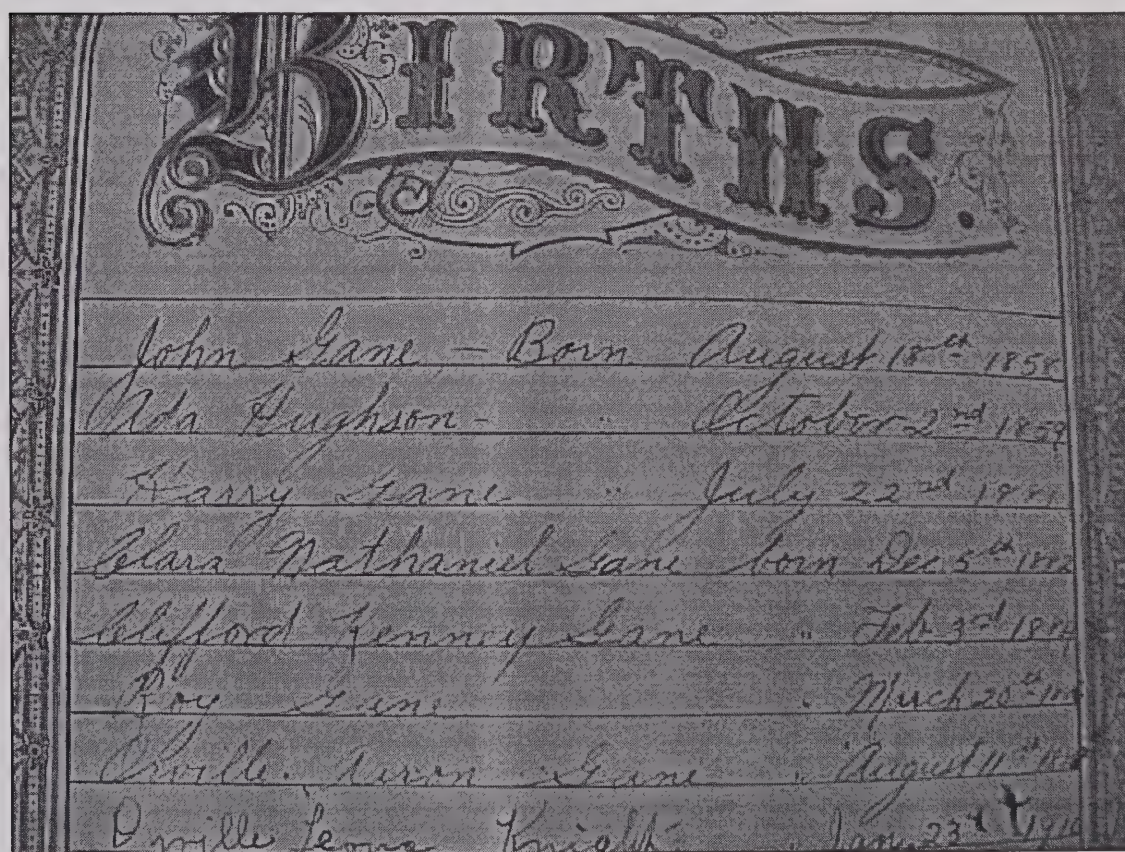 BIRTHS.
John Gane – Born August 18th 1858
Ada Hughson – " October 2nd 1859
Harry Gane " July 22nd
Clara Nathaniel Gane born Dec 5th
Clifford Kenney Gane " Feb 3rd
Roy Gane " March
Orville Aaron Gane " August 11th
Orville Lewis Knight " Jan 23rd